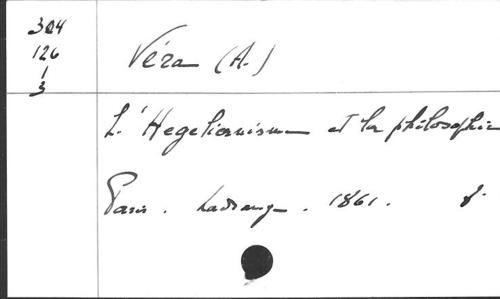 304
126
1
3
Véra (A.)
L'Hegelianisme et la philosophie
Paris. Ladrange. 1861. f.